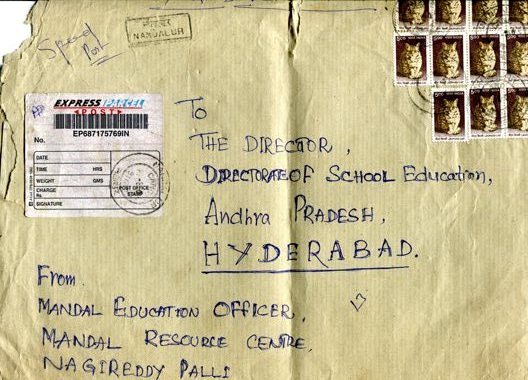 Special
Post
NANDALUR
EXPRESS PARCEL
POST
No.
EP687175769IN
DATE
TIME HRS
WEIGHT GMS
CHARGE
Rs
SIGNATURE
POST OFFICE
STAMP
To
THE DIRECTOR,
DIRECTORATE OF SCHOOL Education,
Andhra PRADESH,
HYDERABAD.
From
MANDAL EDUCATION OFFICER,
MANDAL RESOURCE CENTRE,
NAGIREDDY PALLI